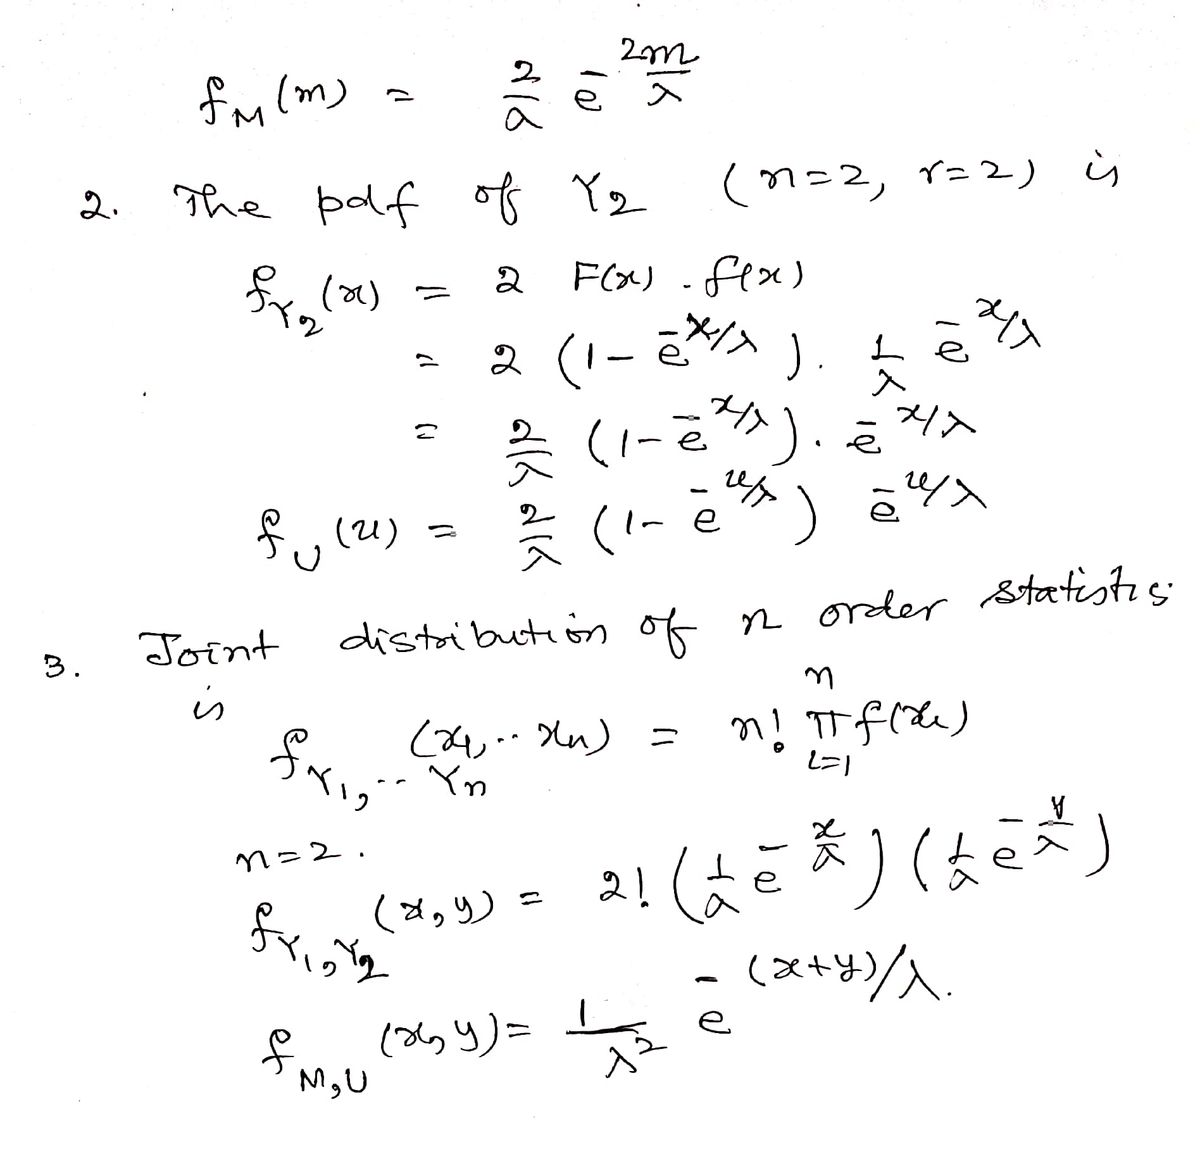 f_M(m) = 2/λ e^{-2m/λ}
2. The pdf of Y_2 (n=2, r=2) is
f_{Y_2}(x) = 2 F(x) . f(x)
= 2 (1 - e^{-x/λ}) . 1/λ e^{-x/λ}
= 2/λ (1 - e^{-x/λ}) . e^{-x/λ}
f_U(u) = 2/λ (1 - e^{-u/λ}) e^{-u/λ}
3. Joint distribution of n order statistis
is
f_{Y_1, .. Y_n} (x_1, .. x_n) = n! ∏_{i=1}^{n} f(x_i)
n=2.
f_{Y_1, Y_2} (x, y) = 2! (1/λ e^{-x/λ}) (1/λ e^{-y/λ})
f_{M,U} (x, y) = 1/λ^2 e^{-(x+y)/λ}.